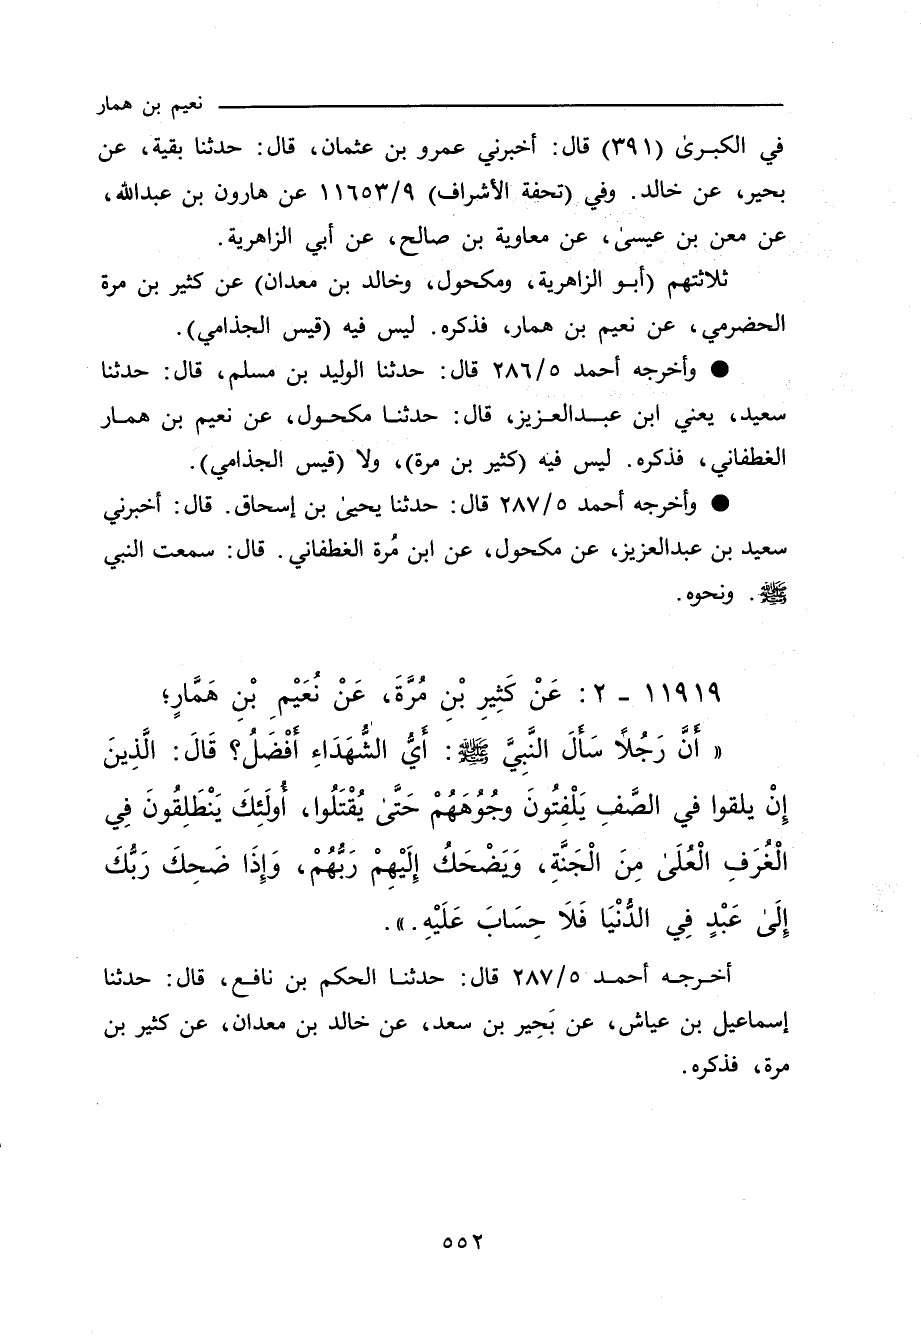 نعيم بن همار
في الكبـرىٰ (٣٩١) قال: أخبرني عمرو بن عثمان، قال: حدثنا بقية، عن
بحير، عن خالد. وفي (تحفة الأشراف) ١١٦٥٣/٩ عن هارون بن عبدالله،
عن معن بن عيسىٰ، عن معاوية بن صالح، عن أبي الزاهرية.
ثلاثتهم (أبـو الزاهرية، ومكحول، وخالد بن معدان) عن كثير بن مرة
الحضرمي، عن نعيم بن همار، فذكره. ليس فيه (قيس الجذامي).
● وأخرجه أحمد ٢٨٦/٥ قال: حدثنا الوليد بن مسلم، قال: حدثنا
سعيد، يعني ابن عبـدالعـزيز، قال: حدثنـا مكحـول، عن نعيم بن همـار
الغطفاني، فذكره. ليس فيه (كثير بن مرة)، ولا (قيس الجذامي).
● وأخرجه أحمد ٢٨٧/٥ قال: حدثنا يحيىٰ بن إسحاق. قال: أخبرني
سعيد بن عبدالعزيز، عن مكحول، عن ابن مُرة الغطفاني. قال: سمعت النبي
ﷺ. ونحوه.
١١٩١٩ - ٢: عَنْ كَثِيرِ بْنِ مُرَّةَ، عَنْ نُعَيْمِ بْنِ هَمَّارٍ؛
« أَنَّ رَجُلاً سَأَلَ النَّبِيَّ ﷺ: أَيُّ الشُّهَدَاءِ أَفْضَلُ؟ قَالَ: الَّذِينَ
إِنْ يلقوا في الصَّفِ يَلْفِتُونَ وجُوهَهُمْ حَتَّىٰ يُقْتَلُوا، أُولَئِكَ يَنْطَلِقُونَ فِي
الْغُرَفِ الْعُلَىٰ مِنَ الْجَنَّةِ، وَيَضْحَكُ إِلَيْهِمْ رَبُّهُمْ، وَإِذَا ضَحِكَ رَبُّكَ
إِلَىٰ عَبْدٍ فِي الدُّنْيَا فَلَا حِسَابَ عَلَيْهِ.».
أخـرجـه أحمـد ٢٨٧/٥ قال: حدثنـا الحكم بن نافـع، قال: حدثنا
إسماعيل بن عياش، عن بَحِير بن سعد، عن خالد بن معدان، عن كثير بن
مرة، فذكره.
٥٥٢